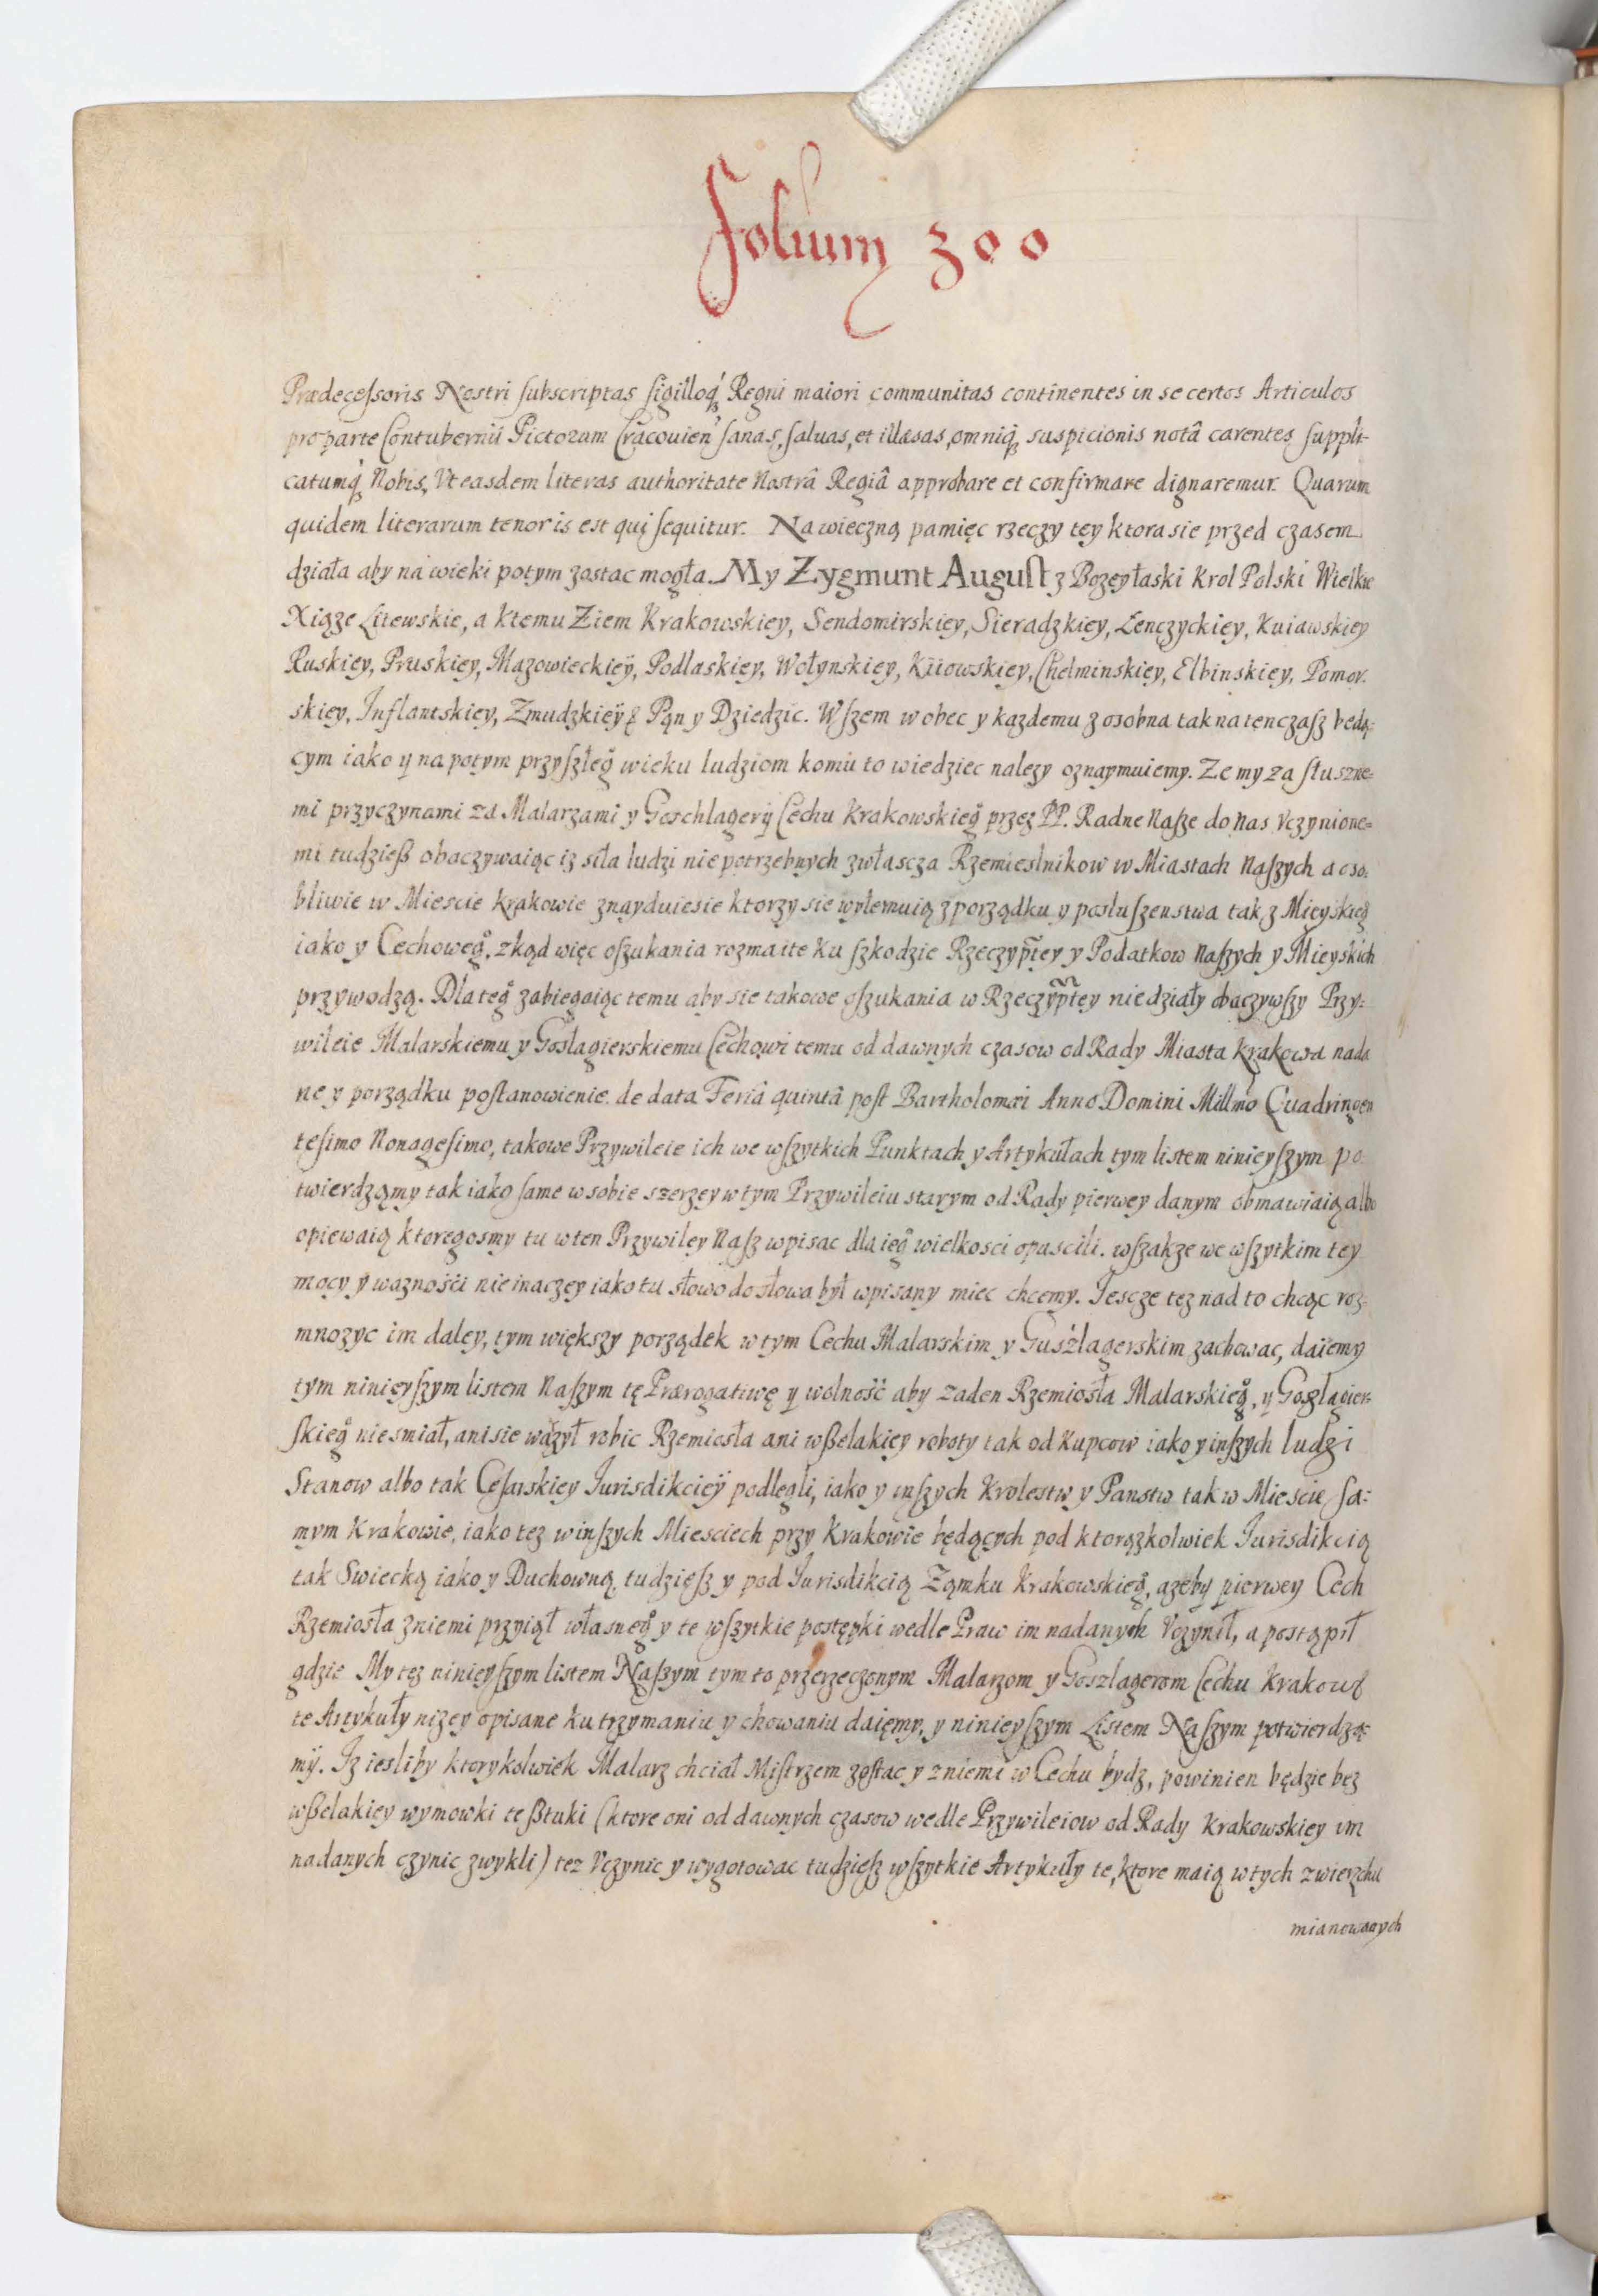 Folium 300
Prædeceſsoris Nostri ſubscriptas ſigilloq́ꝫ Regni maiori communitas continentes in se certos Articulos
pro parte Contubernii Pictorum Cracouien̛ ſanas, ſaluas, et illæsas, omniq́ꝫ suspicionis notâ carentes ſuppli-
catumq́ꝫ Nobis, Vt easdem literas authoritate Nostrâ Regiâ approbare et confirmare dignaremur. Quarum
quidem literarum tenor is est qui ſequitur. Na wieczną pamięc rzeczy tey ktora sie przed czasem
działa aby na wieki potym zostac mogła. My Zygmunt Auguſt z Bozey łaski Krol Polski Wielkie
Xiąze Litewskie, a ktemu Ziem Krakowskiey, Sendomirskiey, Sieradzkiey, Lenczyckiey, Kuiawskiey
Ruskiey, Pruskiey, Mazowieckieÿ, Podlaskiey, Wołynskiey, Kiiowskiey, Chelminskiey, Elbinskiey, Pomor.
skiey, Inflantskiey, Zmudzkieÿ & Pąn y Dziedzic. Wſzem wobec y kazdemu z osobna tak na tenczaſz bedą:
cym iako y na potym przyſzłeg̊ wieku ludziom komu to wiedziec nalezy oznaymuiemy. Ze my za ſłuszne-
mi przyczynami za Malarzami y Goschlagerÿ Cechu Krakowskieg̊ przez PP. Radne Naſze do nas Vczynione-
mi tudzieß obaczywaiąc iz siła ludzi niepotrzebnych zwłascza Rzemieslnikow w Miastach Naſzych a oso.
bliwie w Miescie Krakowie znayduiesie ktorzy sie wyłemuią z porządku y posłuſzenstwa tak z Mieyskieg̊
iako y Cechoweg̊, zkąd więc oſzukania rozmaite ku ſzkodzie Rzeczyp̃tey y Podatkow Naſzych y Mieyskich
przywodzą. Dla teg̊ zabiegaiąc temu aby sie takowe oſzukania w Rzeczyp̃tey nie działy obaczywſzy Przy:
wileie Malarskiemu y Gosłagierskiemu Cechowi temu od dawnych czasow od Rady Miasta Krakowa nada
ne y porządku poſtanowienie. de data Feriâ quintâ poſt Bartholomæi Anno Domini Millmo Quadringen
teſimo Nonageſimo, takowe Przywileie ich we wſzytkich Punktach y Artykułach tym listem ninieyſzym po
twierdząmy tak iako ſame w sobie szerzey w tym Przywileiu starym od Rady pierwey danym obmawiaią albo
opiewaią ktoregosmy tu w ten Przywiley Naſz wpisac dla ieg̊ wielkosci opuscili. wſzakze we wſzytkim tey
mocy y waznośći nie inaczey iako tu słowo do słowa był wpisany miec chcemy. Jescze tez nad to chcąc roz-
mnozyc im daley, tym większy porządek w tym Cechu Malarskim y Guśzlagerskim zachowac, daiemy
tym ninieyſzym listem Naſzym tę Prærogatiwę y wolność aby zaden Rzemiosła Malarskieg̊, y Goszlagier-
ſkieg̊ nie smiał, ani sie wązył robic Rzemiosła ani wßelakiey roboty tak od Kupcow iako y inſzych ludzi
Stanow albo tak Ceſarskiey Jurisdikcieÿ podlegli, iako y inſzych Krolestw y Panstw tak w Miescie ſa:
mym Krakowie, iako tez w inſzych Miesciech przy Krakowie będących pod ktorązkolwiek Jurisdikcią
tak Swiecką iako y Duchowną, tudzięſz y pod Jurisdikcią Ząmku Krakowskieg̊, azeby pierwey Cech
Rzemiosła z niemi przyiął własneg̊ y te wſzytkie postępki wedle Praw im nadanych Vczynił, a postąpił
gdzie My tez ninieyſzym listem Naſzym tym to przerzeczonym Malarzom y Goszlagerom Cechu Krakows
te Artykuły nizey opisane ku trzymaniu y chowaniu daięmy, y ninieyſzym Listem Naſzym potwierdzą-
mÿ. Iz iesliby ktorykolwiek Malarz chciał Miſtrzem zoſtac y z niemi w Cechu bydz, powinien będzie bez
wßelakiey wymowki te ßtuki (ktore oni od dawnych czasow wedle Przywileiow od Rady Krakowskiey im
nadanych czynic zwykli) tez Vczynic y wygotowac tudzieſz wſzytkie Artykuły te, ktore maią w tych zwierzchu
mianowanych